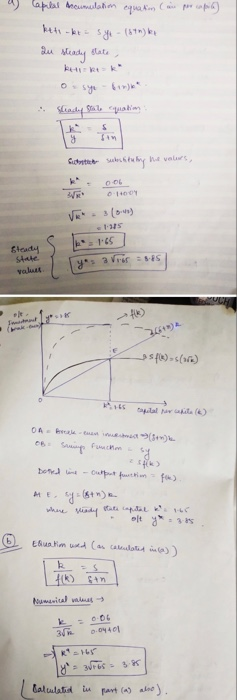 a) Capital Accumulation equation (in per capita)
kt+1 - kt = syt - (δ+n)kt
In steady state,
kt+1 = kt = k*
0 = sy* - (δ+n)k*
∴ Steady State equation:
k*/y = s/(δ+n)
substituting the values,
k*/3√k* = 0.06/(0.1+0.04)
√k* = 3(0.43)
= 1.285
Steady state values
k* = 1.65
y* = 3√1.65 = 3.85
o/p,
Investment
(break-even)
y* = 3.85
f(k)
(δ+n)k
E
s f(k) = s(3√k)
0
k* = 1.65
capital per capita (k)
OA = Break-even investment → (δ+n)k
OB = Saving function = sy
= sf(k)
Dotted line - output function = f(k).
At E, sy = (δ+n)k
where steady state capital k* = 1.65
" o/p y* = 3.85
(b) Equation used (as calculated in (a))
k/f(k) = s/(δ+n)
Numerical values →
k/3√k = 0.06/(0.04+0.1)
⇒ k* = 1.65
y* = 3√1.65 = 3.85
(Calculated in part (a) also).